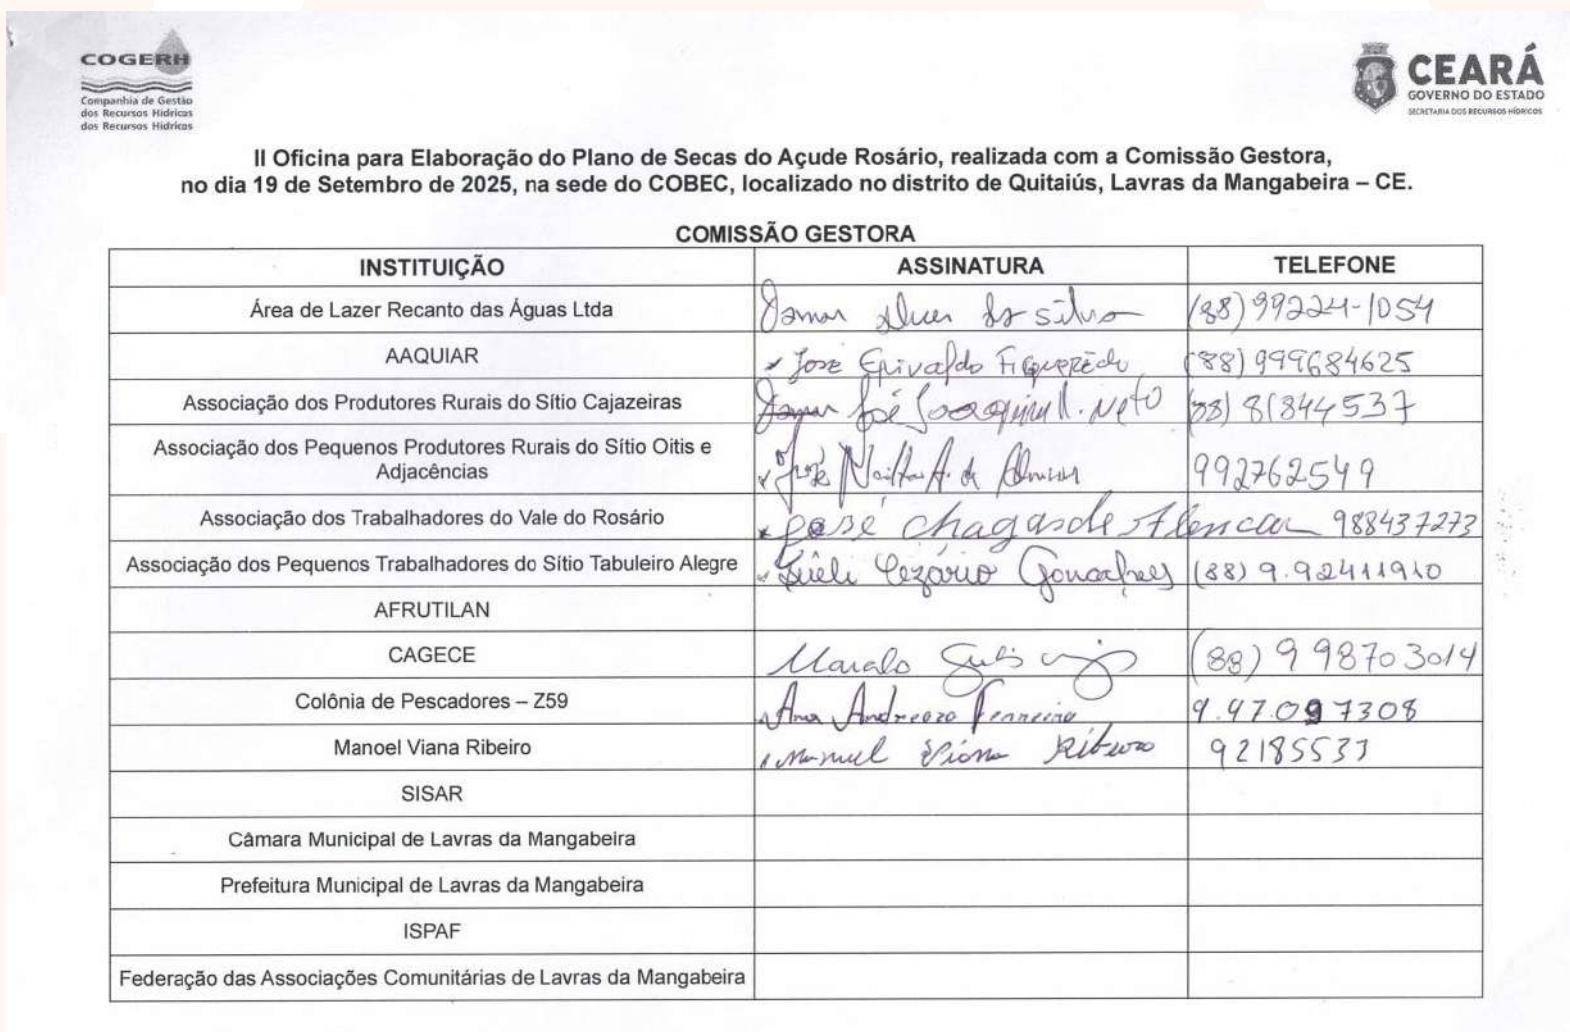 COGERH
Companhia de Gestão
dos Recursos Hídricos
dos Recursos Hídricos
CEARÁ
GOVERNO DO ESTADO
SECRETARIA DOS RECURSOS HÍDRICOS
II Oficina para Elaboração do Plano de Secas do Açude Rosário, realizada com a Comissão Gestora,
no dia 19 de Setembro de 2025, na sede do COBEC, localizado no distrito de Quitaiús, Lavras da Mangabeira – CE.
COMISSÃO GESTORA
INSTITUIÇÃO ASSINATURA TELEFONE
Área de Lazer Recanto das Águas Ltda da silva (88) 99224-1054
AAQUIAR José Erivaldo Figueredo (88) 999684625
Associação dos Produtores Rurais do Sítio Cajazeiras José Joaquim Neto (88) 81844537
Associação dos Pequenos Produtores Rurais do Sítio Oitis e
Adjacências José 992762549
Associação dos Trabalhadores do Vale do Rosário José Chagas de Alencar 988437273
Associação dos Pequenos Trabalhadores do Sítio Tabuleiro Alegre Cezário Gonçalves (88) 9.92411910
AFRUTILAN
CAGECE (88) 998703014
Colônia de Pescadores – Z59 Ana Ferreira 9.97.097308
Manoel Viana Ribeiro Manuel Viana Ribeiro 92185533
SISAR
Câmara Municipal de Lavras da Mangabeira
Prefeitura Municipal de Lavras da Mangabeira
ISPAF
Federação das Associações Comunitárias de Lavras da Mangabeira